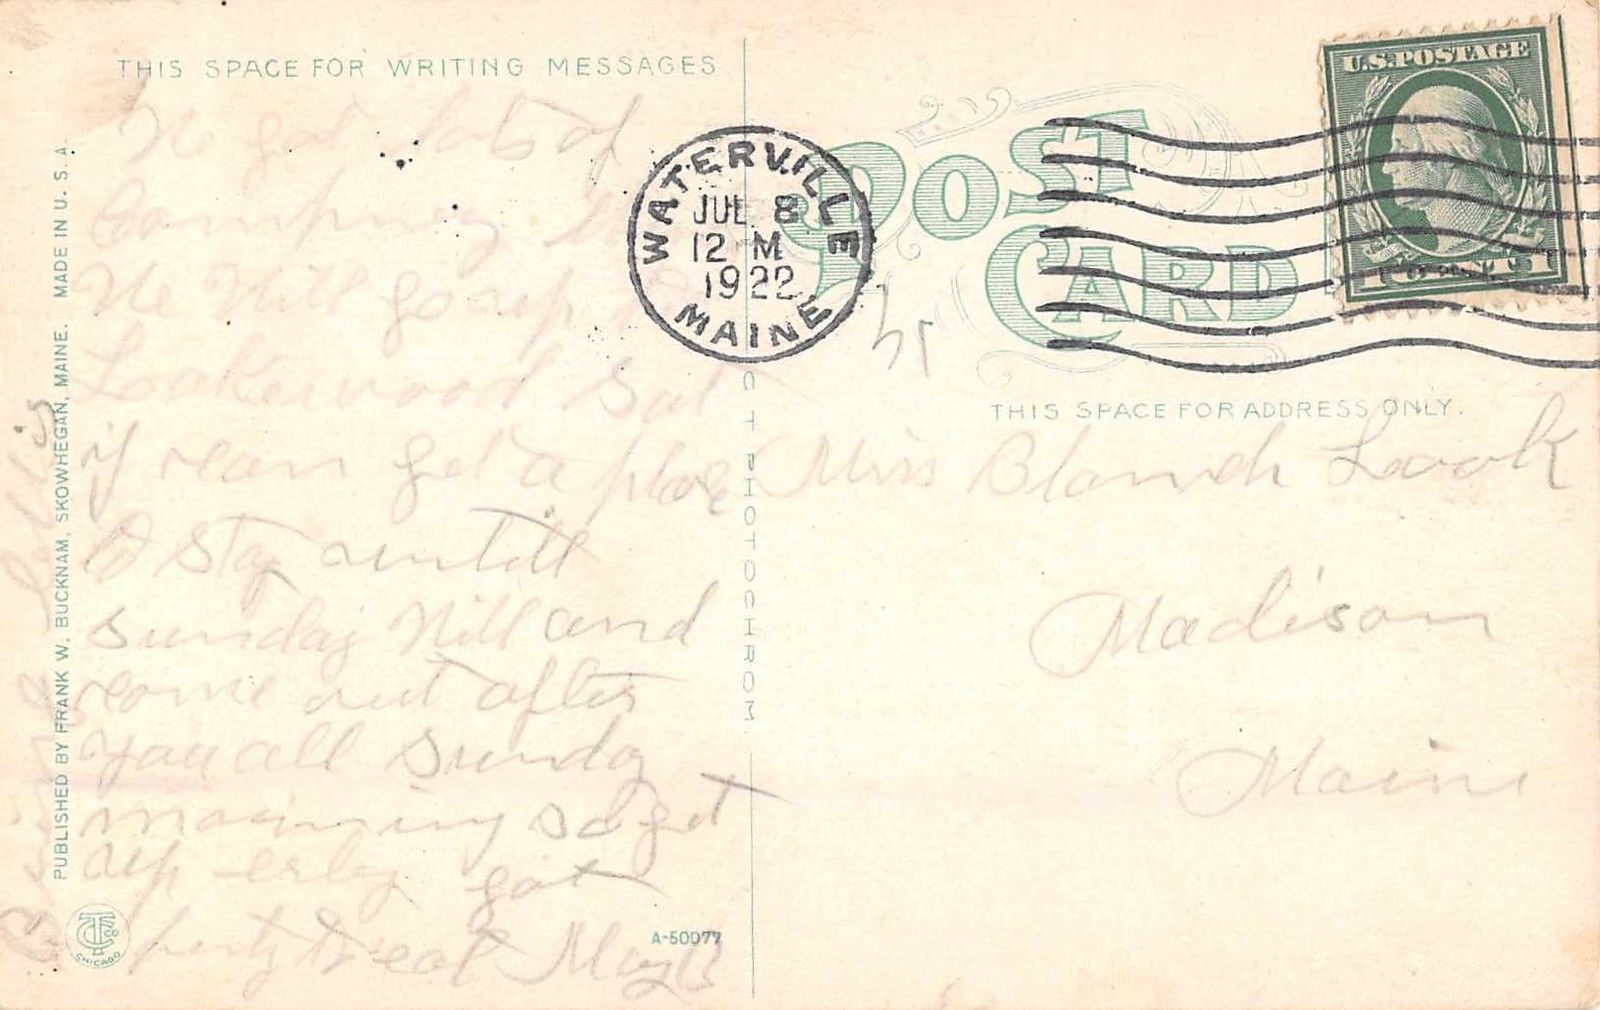 THIS SPACE FOR WRITING MESSAGES
We got lots of
Company
We Will go up
Lookewood Sat
if i can get a place
to stay untill
Sunday Will and
come out after
you all Sunday
morning so get
up erly got
plenty to eat May B
PUBLISHED BY FRANK W. BUCKNAM, SKOWHEGAN, MAINE. MADE IN U. S. A.
CHICAGO
A-50077
C T PHOTOCHROM
WATERVILLE
JUL 8
12 M
1922
MAINE
POST
CARD
U.S. POSTAGE
THIS SPACE FOR ADDRESS ONLY.
Miss Blanch Look
Madison
Maine